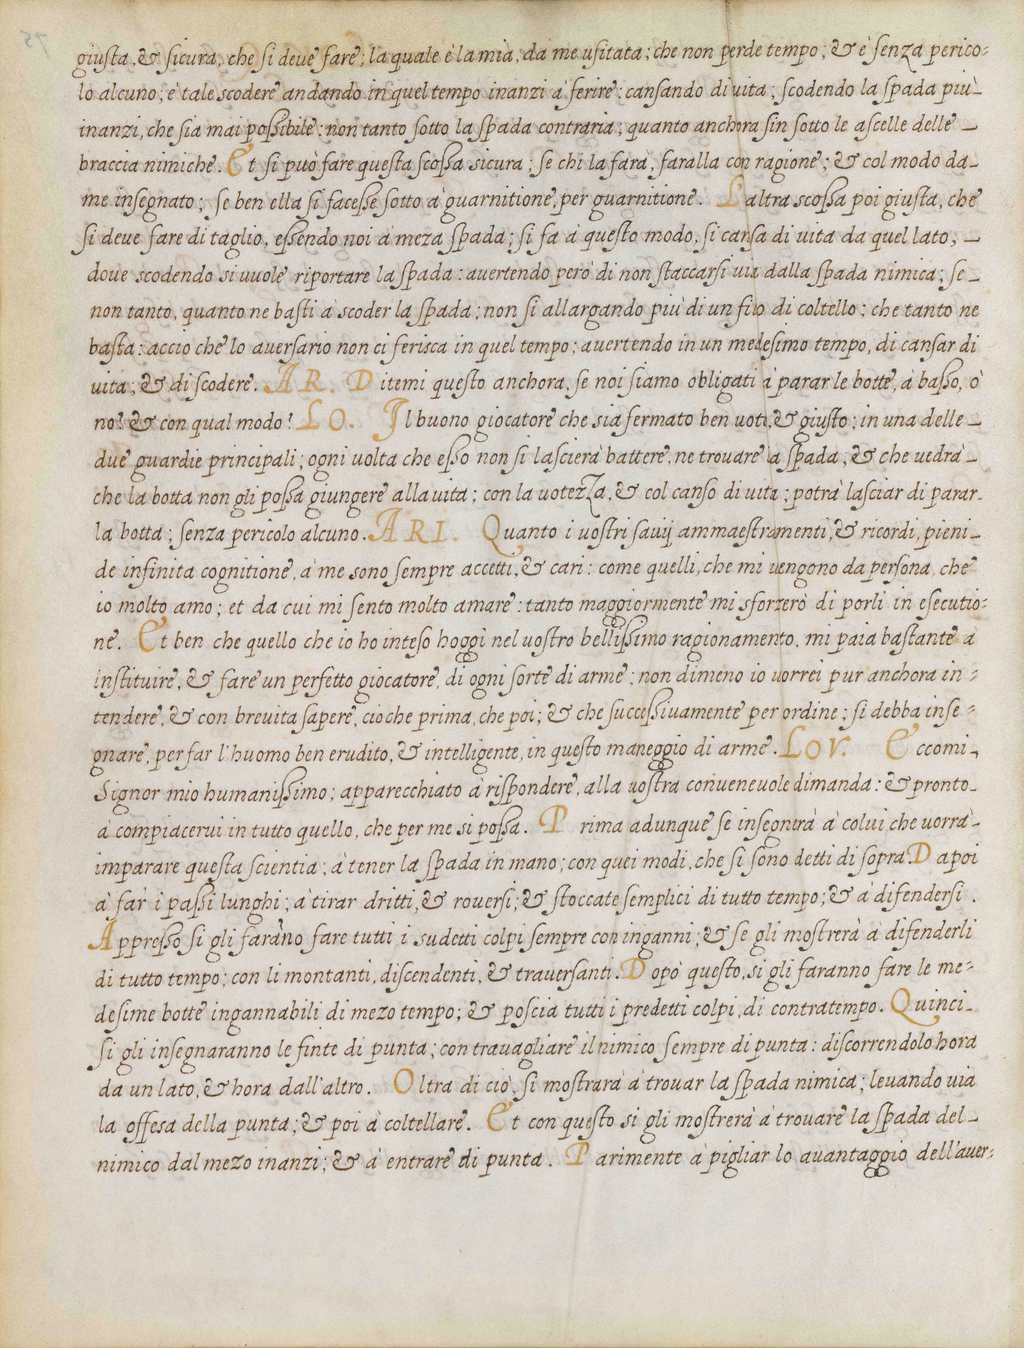 giusta, & sicura, che si deue fare; la quale è la mia, da me usitata; che non perde tempo; & è senza perico-
lo alcuno; è tale scodere andando in quel tempo inanzi à ferire: cansando di uita; scodendo la spada più
inanzi, che sia mai possibile: non tanto sotto la spada contraria; quanto anchora sin sotto le ascelle delle
braccia nimiche. Et si può fare questa scossa sicura; se chi la farà, faralla con ragione; & col modo da
me insegnato; se ben ella si facesse sotto à guarnitione, per guarnitione. L'altra scossa poi giusta, che
si deue fare di taglio, essendo noi à meza spada; si fa à questo modo, si cansa di uita da quel lato,
doue scodendo si uuole riportare la spada: auertendo però di non staccarsi uia dalla spada nimica; se
non tanto, quanto ne basti à scoder la spada; non si allargando più di un filo di coltello; che tanto ne
basta: accio che lo auersario non ci ferisca in quel tempo; auertendo in un medesimo tempo, di cansar di
uita; & di scodere. AR. Ditemi questo anchora, se noi siamo obligati à parar le botte, à basso, ò
no? & con qual modo? LO. Il buono giocatore che sia fermato ben uoti, & giusto; in una delle
due guardie principali; ogni uolta che esso non si lascierà battere, ne trouare la spada, & che uedrà
che la botta non gli possa giungere alla uita; con la uotezza, & col canso di uita; potrà lasciar di parar
la botta; senza pericolo alcuno. ARI. Quanto i uostri sauij ammaestramenti, & ricordi, pieni
de infinita cognitione, à me sono sempre accetti, & cari: come quelli, che mi uengono da persona, che
io molto amo; et da cui mi sento molto amare: tanto maggiormente mi sforzerò di porli in esecutio-
ne. Et ben che quello che io ho inteso hoggi nel uostro bellissimo ragionamento, mi paia bastante à
instituire, & fare un perfetto giocatore, di ogni sorte di arme; non dimeno io uorrei pur anchora in-
tendere, & con breuita sapere, ciò che prima, che poi; & che successiuamente per ordine; si debba inse-
gnare, per far l'huomo ben erudito, & intelligente, in questo maneggio di arme. LOV. Eccomi
Signor mio humanissimo; apparecchiato à rispondere, alla uostra conueneuole dimanda: & pronto
à compiacerui in tutto quello, che per me si possa. Prima adunque se insegnerà à colui che uorrà
imparare questa scientia; à tener la spada in mano; con quei modi, che si sono detti di sopra. Dapoi
à far i passi lunghi; à tirar dritti, & rouersi; & stoccate semplici di tutto tempo; & à difendersi.
Appresso si gli faranno fare tutti i sudetti colpi sempre con inganni; & se gli mostrerà à difenderli
di tutto tempo; con li montanti, discendenti, & trauersanti. Dopò questo, si gli faranno fare le me-
desime botte ingannabili di mezo tempo; & poscia tutti i predetti colpi, di contratempo. Quinci
si gli insegnaranno le finte di punta; con trauagliare il nimico sempre di punta: discorrendolo hora
da un lato, & hora dall'altro. Oltra di ciò, si mostrarà à trouar la spada nimica; leuando uia
la offesa della punta; & poi à coltellare. Et con questo si gli mostrerà à trouare la spada del
nimico dal mezo inanzi; & à entrare di punta. Parimente à pigliar lo auantaggio dell'auer-